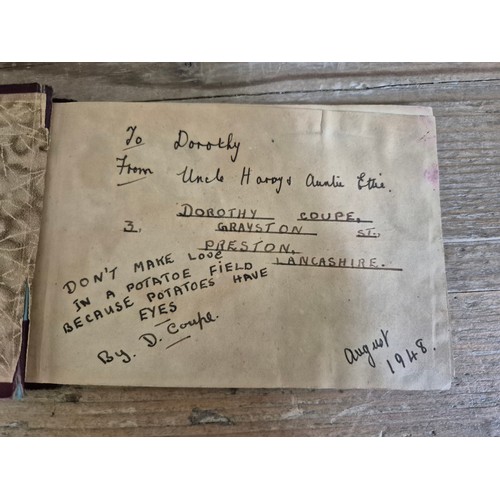 To Dorothy
From Uncle Harry & Auntie Ettie.
DOROTHY COUPE,
3, GRAYSTON ST.,
PRESTON,
LANCASHIRE.
DON'T MAKE LOVE
IN A POTATOE FIELD
BECAUSE POTATOES HAVE
EYES
By. D. Coupe.
August
1948.